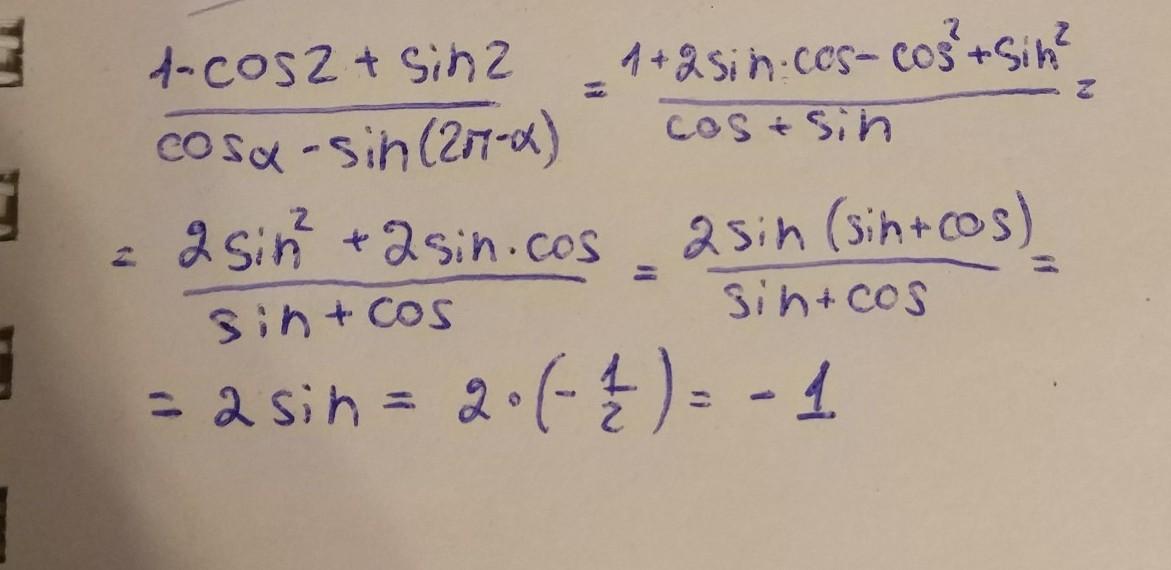 1-cos2 + sin2 / cosα - sin(2π-α) = 1+2sin·cos - cos² + sin² / cos + sin =
= 2sin² + 2sin·cos / sin + cos = 2sin (sin+cos) / sin+cos =
= 2sin = 2·(-1/2) = -1